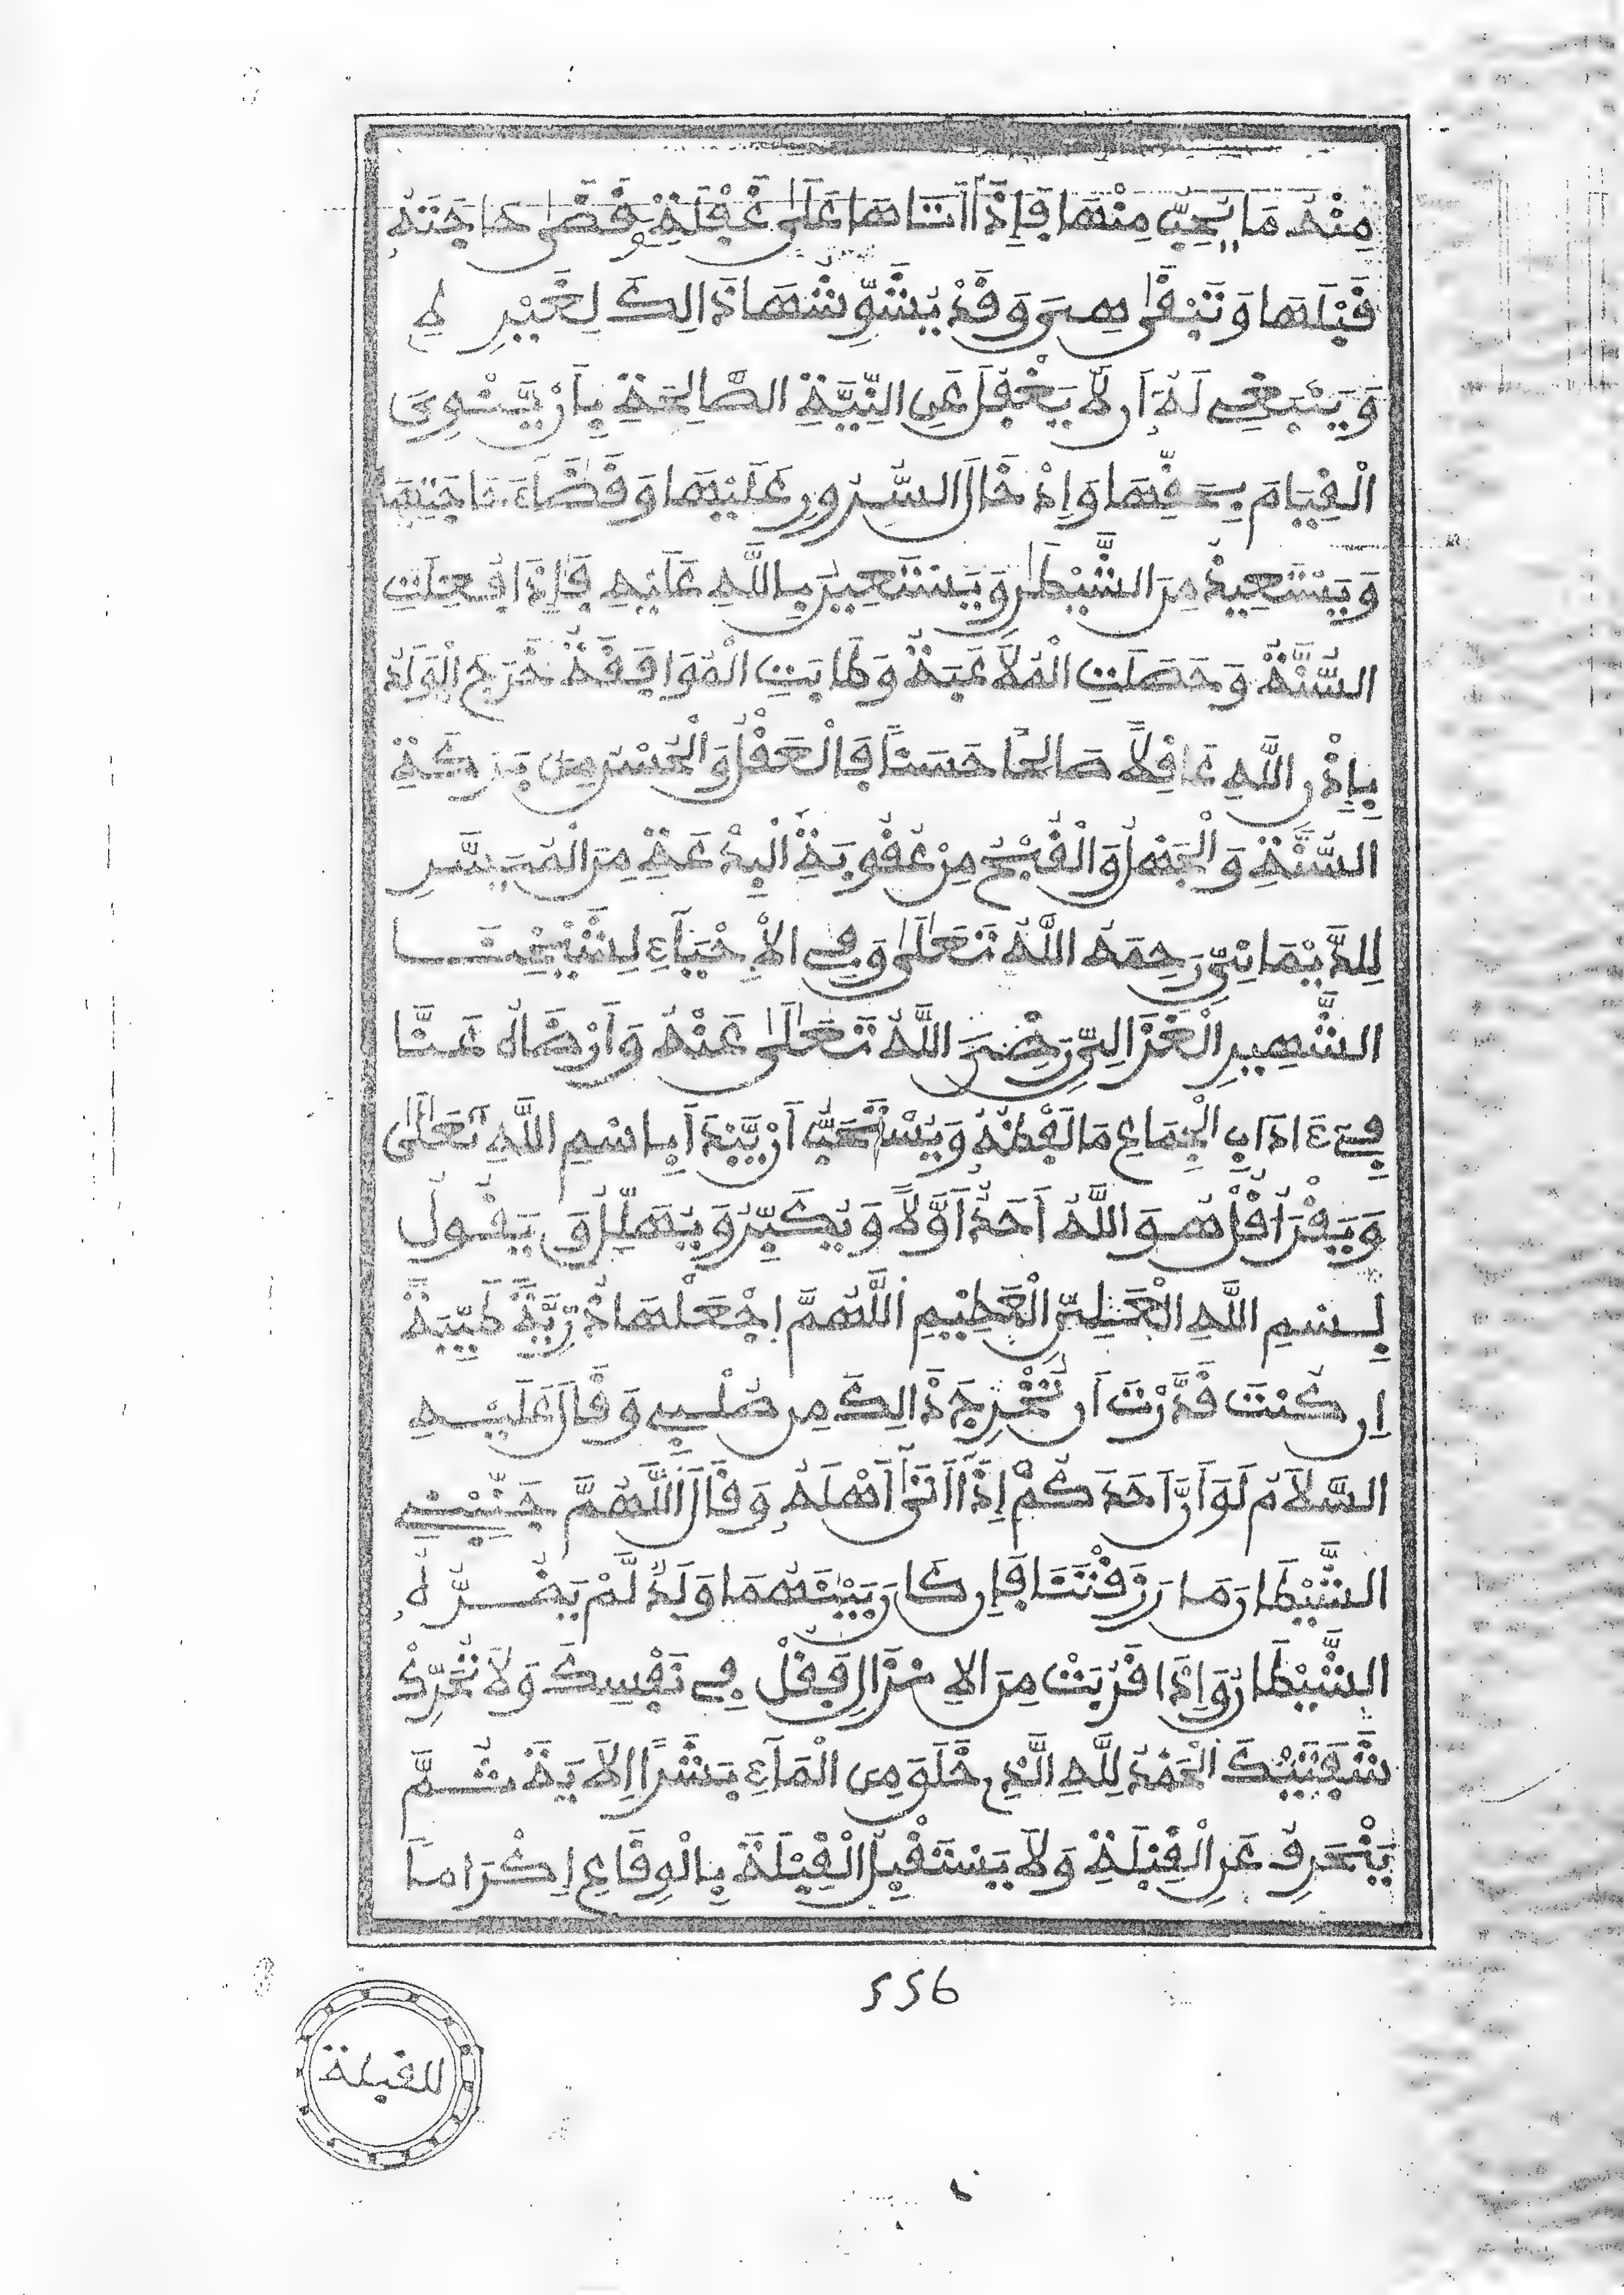 مِنْهُ مَا يُحِبُّ مِنْهَا فَإِذَا أَتَاهَا عَلَى غَفْلَةٍ قَضَى حَاجَتَهُ
قَبْلَهَا وَتَبْقَى هِىَ وَقَدْ يُشَوِّشُهَا ذَالِكَ لِغَيْرِ
وَيَنْبَغِي لَهُ أَن لَّا يَغْفُلَ عَنِ النِّيَّةِ الصَّالِحَةِ بِأَنْ يَّنْوِىَ
الْقِيَامَ بِحَقِّهَا وَإِدْخَالَ السُّرُورِ عَلَيْهَا وَقَضَاءَ حَاجَتِهَا
وَيَسْتَعِيذُ مِنَ الشَّيْطَٰنِ وَيَسْتَعِينُ بِاللَّهِ عَلَيْهِ فَإِذَا فُعِلَتِ
السُّنَّةُ وَحَصَلَتِ الْمُلَاعَبَةُ وَطَابَتِ الْمُوَافَقَةُ خَرَجَ الْوَلَدُ
بِإِذْنِ اللَّهِ عَاقِلًا صَالِحًا حَسَنًا فَالْعَقْلُ وَالْحُسْنُ مِن بَرَكَةِ
السُّنَّةِ وَالْجَهْلُ وَالْقُبْحُ مِنْ عُقُوبَةِ الْبِدْعَةِ مِنَ الْمُيَسِّرِ
لِلدَّيْمَانِيِّ رَحِمَهُ اللَّهُ تَعَالَى وَفِي الْإِحْيَاءِ لِشَيْخِنَا
الشَّهِيرِ الْغَزَالِيِّ رَضِىَ اللَّهُ تَعَالَى عَنْهُ وَأَرْضَاهُ عَنَّا
فِي ءَادَابِ الْجِمَاعِ مَا لَفْظُهُ وَيُسْتَحَبُّ أَنْ يَّبْدَأَ بِاسْمِ اللَّهِ تَعَالَى
وَيَقْرَأَ قُلْ هُوَ اللَّهُ أَحَدٌ أَوَّلًا وَيُكَبِّرُ وَيُهَلِّلُ وَيَقُولُ
بِسْمِ اللَّهِ الْعَلِيِّ الْعَظِيمِ اللَّهُمَّ اِجْعَلْهَا ذُرِّيَّةً طَيِّبَةً
إِن كُنتَ قَدَّرْتَ أَن تُخْرِجَ ذَالِكَ مِن صُلْبِي وَقَالَ عَلَيْهِ
السَّلَامُ لَوَ أَنَّ أَحَدَكُمْ إِذَا أَتَى أَهْلَهُ وَقَالَ اللَّهُمَّ جَنِّبْنِي
الشَّيْطَانَ وَجَنِّبِ الشَّيْطَانَ مَا رَزَقْتَنَا فَإِن كَانَ بَيْنَهُمَا وَلَدٌ لَّمْ يَضُرَّهُ
الشَّيْطَانُ وَإِذَا قَرُبَتْ مِنَ الْإِنْزَالِ فَقُلْ فِي نَفْسِكَ وَلَا تُحَرِّكْ
شَفَتَيْكَ الْحَمْدُ لِلَّهِ الَّذِي خَلَقَ مِنَ الْمَاءِ بَشَرًا اَلْآيَةَ ثُمَّ
يَنْحَرِفُ عَنِ الْقِبْلَةِ وَلَا يَسْتَقْبِلُ الْقِبْلَةَ بِالْوِقَاعِ إِكْرَامًا
556
للقبلة